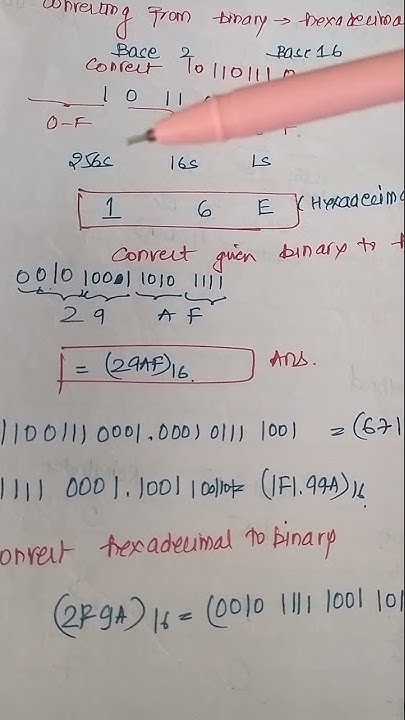 from binary → hexadecima
Base 2 Base 16
Convert 10110111 0
1 0 11
0-F F.
256s 16s 1s
1 6 E (Hexadecima
Convert given binary to
0010 1001 1010 1111
2 9 A F
= (29AF)16 Ans.
1100111 0001.0001 0111 1001 = (671
1111 0001.1001 = (1F1.99A)16
onvert hexadecimal to binary
(2F9A)16 = (0010 1111 1001 101